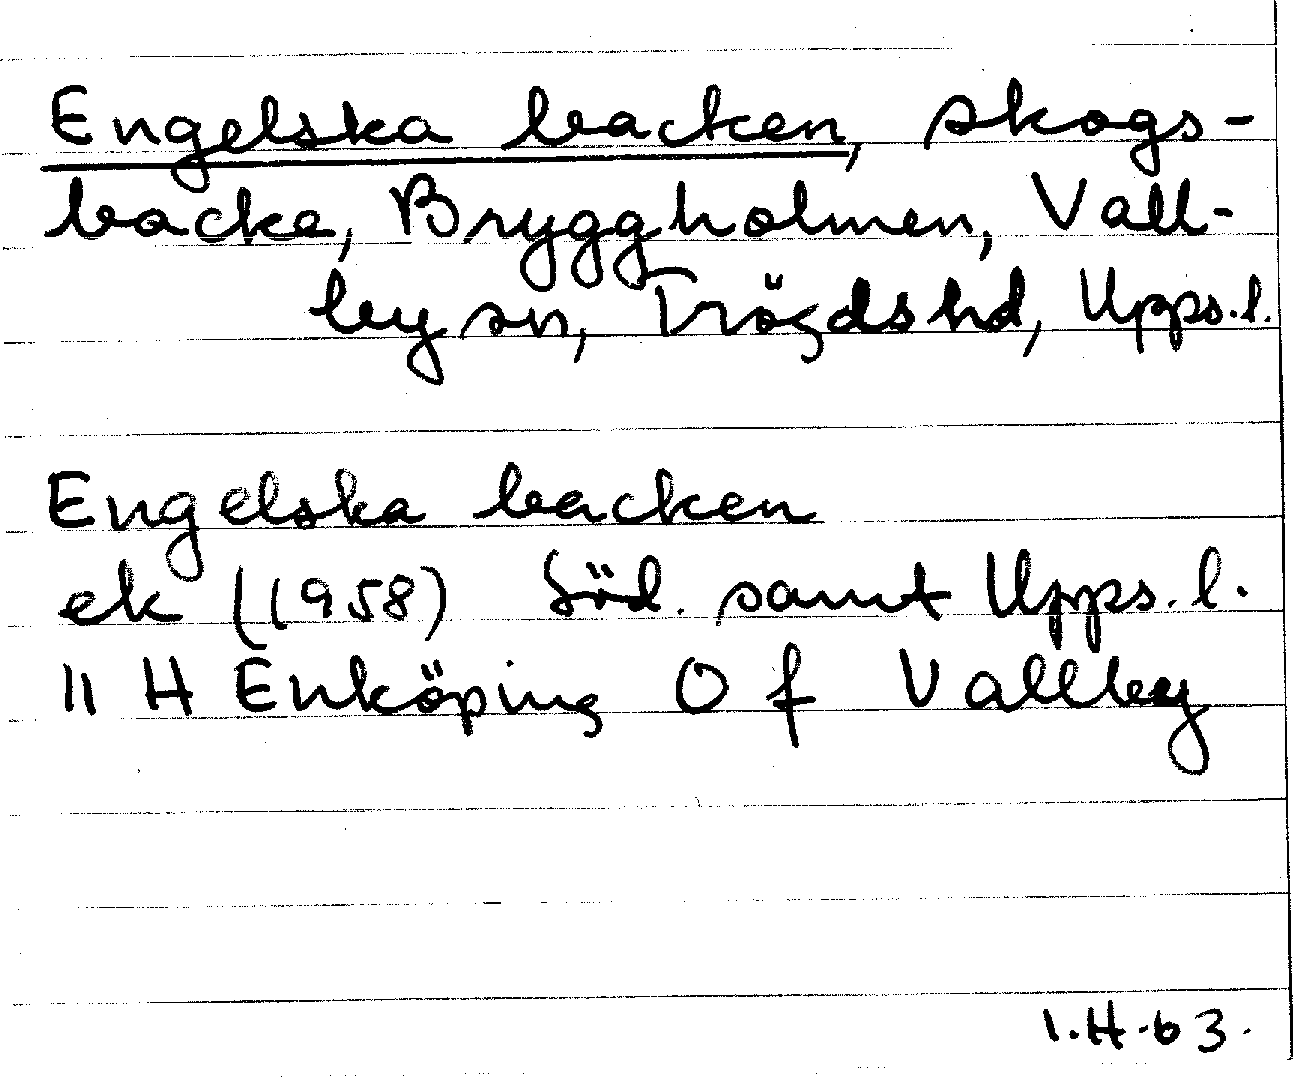 Engelska backen, skogs-
backe, Bryggholmen, Vall-
by sn, Trögds hd, Upps. l.
Engelska backen
ek (1958) Söd. samt Upps. l.
11 H Enköping O f Vallby
I.H.63.